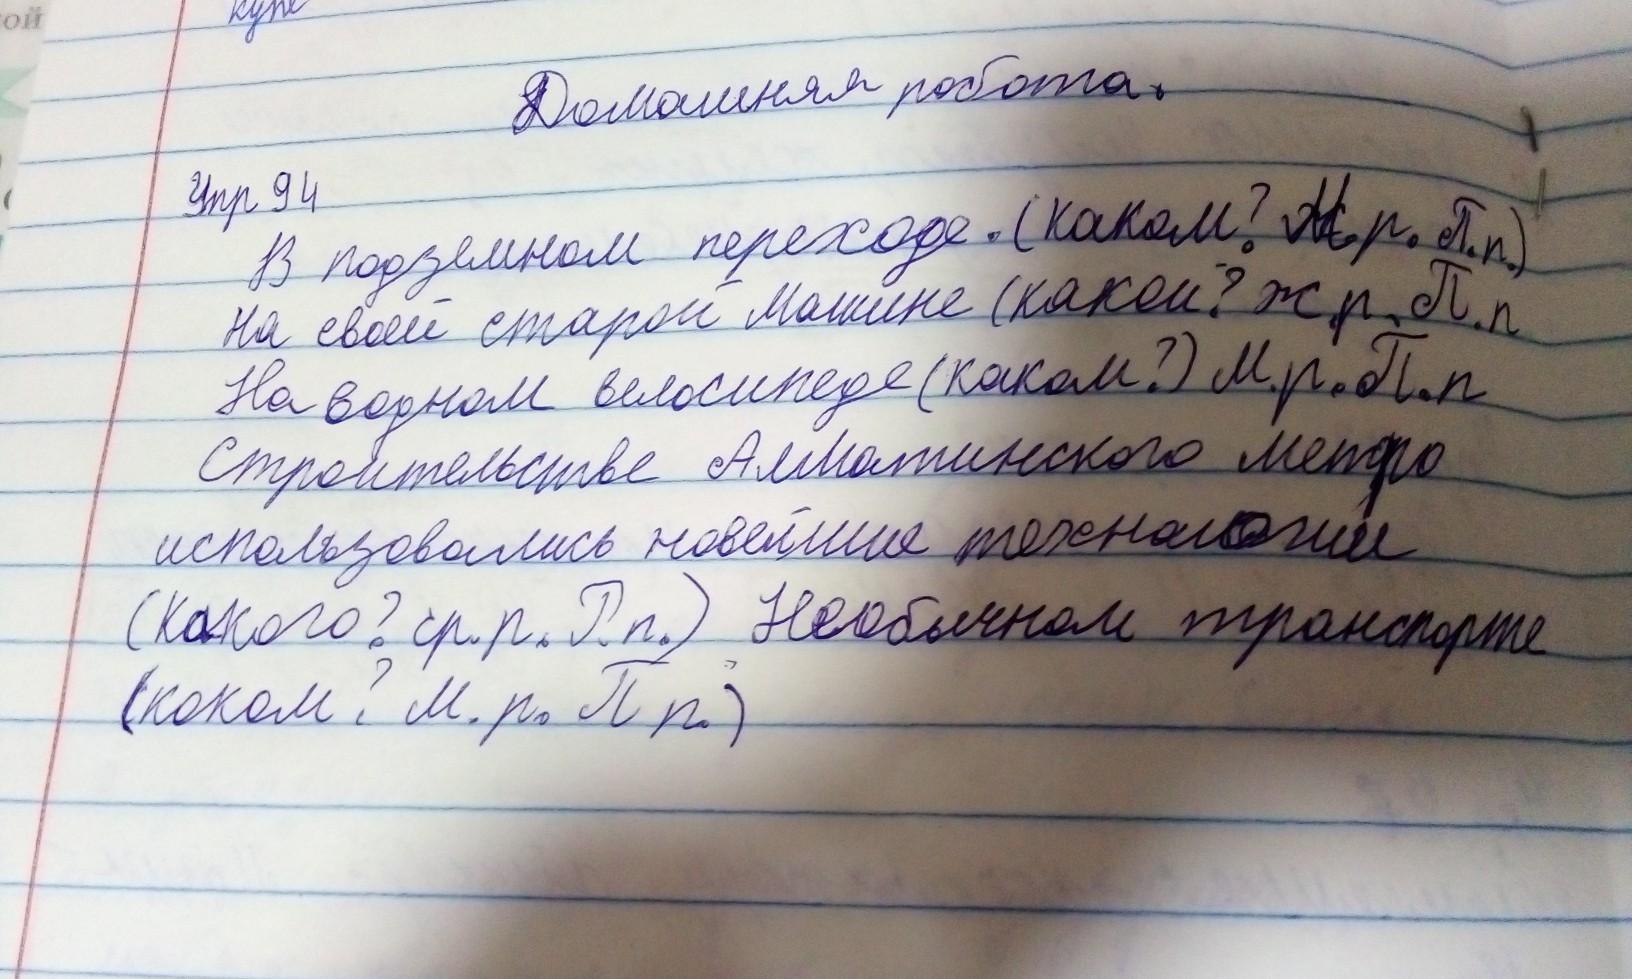 ой
купе
Домашняя работа.
Упр 94
В подземном переходе. (каком? М.р. П.п.)
На своей старой машине (какой? ж.р. П.п
На водном велосипеде (каком?) М.р. П.п
Строительстве Алматинского метро
использовались новейшие технологии
(какого? ср.р. Р.п.) Необычном транспорте
(каком? М.р. П п.)